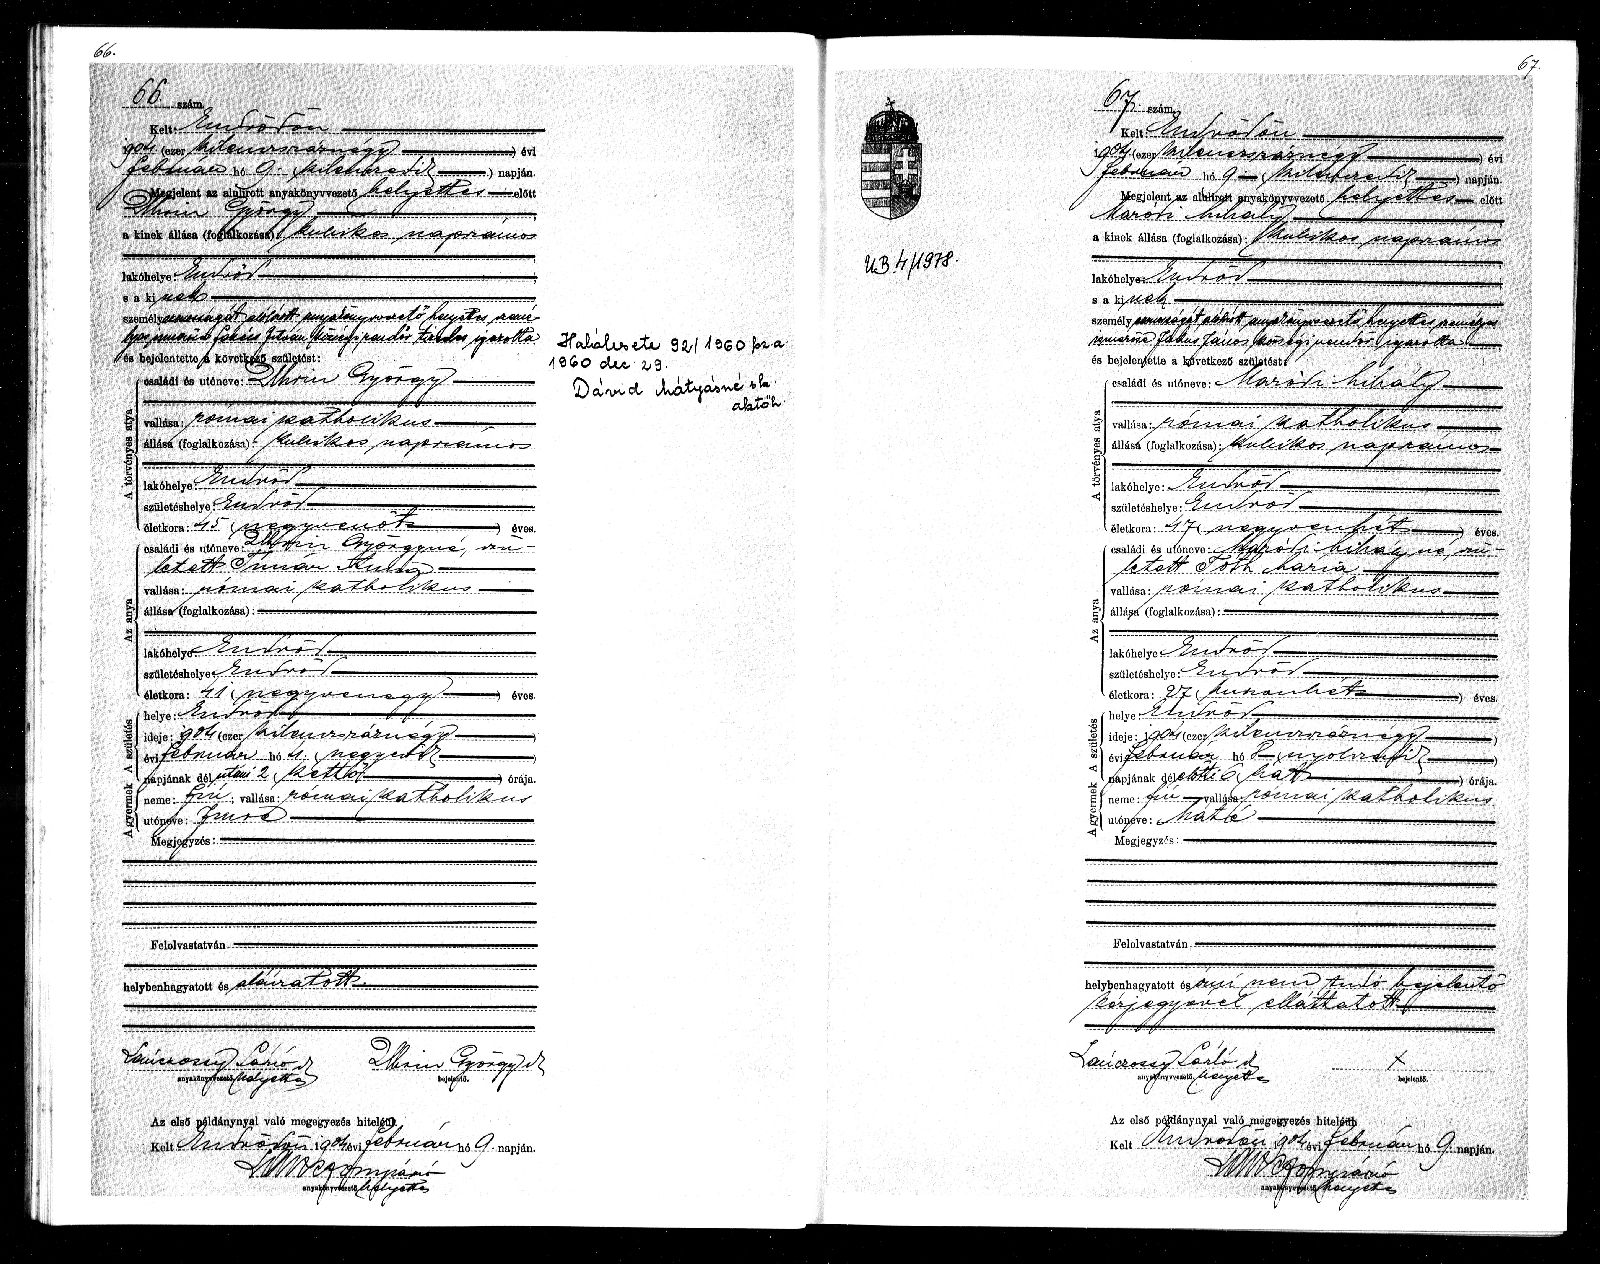 66.
66 szám.
Kelt: Endrődön
1904 (ezer kilenczszáznégy) évi
február hó 9. (kilenczedik) napján.
Megjelent az alulirott anyakönyvvezető helyettes előtt
György
a kinek állása (foglalkozása): kubikos napszámos
lakóhelye: Endrőd
s a kinek
személyazonosságát alólirott anyakönyvvezető helyettes
István községi rendőr igazolta
és bejelentette a következő születést:
A törvényes atya
családi és utóneve: György
vallása: római katholikus
állása (foglalkozása): kubikos napszámos
lakóhelye: Endrőd
születéshelye: Endrőd
életkora: 45 (negyvenöt) éves.
Az anya
családi és utóneve: Györgyné, szü-
letett Timár
vallása: római katholikus
állása (foglalkozása):
lakóhelye: Endrőd
születéshelye: Endrőd
életkora: 41 (negyvenegy) éves.
A gyermek A születés
helye: Endrőd
ideje: 1904 (ezer kilenczszáznégy)
évi február hó 4. (negyedik)
napjának dél utáni 2 (kettő) órája.
neme: fiú; vallása: római katholikus
utóneve: Imre
Megjegyzés:
Felolvastatván
helybenhagyatott és aláiratott.
György
anyakönyvvezető helyettes
bejelentő.
Az első példánynyal való megegyezés hiteléül:
Kelt Endrődön 1904 évi február hó 9. napján.
anyakönyvvezető. helyettes
Halálesete 92/1960 fsz a
1960 dec 29.
Dávid Mátyásné sk.
aktőh.
67.
67. szám.
Kelt: Endrődön
1904 (ezer kilenczszáznégy) évi
február hó 9 (kilenczedik) napján.
Megjelent az alulirott anyakönyvvezető helyettes előtt
Maródi Mihály
a kinek állása (foglalkozása): kubikos napszámos
lakóhelye: Endrőd
s a kinek
személyazonosságát alólirott anyakönyvvezető helyettes
János községi rendőr igazolta
és bejelentette a következő születést:
A törvényes atya
családi és utóneve: Maródi Mihály
vallása: római katholikus
állása (foglalkozása): kubikos napszámos
lakóhelye: Endrőd
születéshelye: Endrőd
életkora: 47 (negyvenhét) éves.
Az anya
családi és utóneve: Maródi Mihályné, szü-
letett Tóth Mária
vallása: római katholikus
állása (foglalkozása):
lakóhelye: Endrőd
születéshelye: Endrőd
életkora: 27 (huszonhét) éves.
A gyermek A születés
helye: Endrőd
ideje: 1904 (ezer kilenczszáznégy)
évi február hó 8 (nyolczadik)
napjának dél előtti 6 (hat) órája.
neme: fiú vallása: római katholikus
utóneve: Máté
Megjegyzés:
Felolvastatván
helybenhagyatott és irni nem tudó bejelentő
kézjegyével elláttatott
X
anyakönyvvezető. helyettes
bejelentő.
Az első példánynyal való megegyezés hiteléül:
Kelt Endrődön 1904 évi február hó 9. napján.
anyakönyvvezető. helyettes
UB 4/1978.